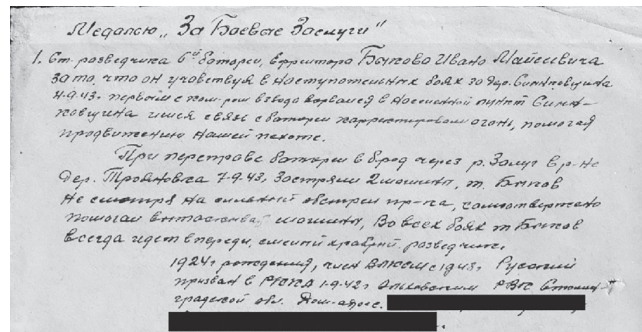 Медалью „За Боевые Заслуги"
1. Ст. разведчика 6ой батареи, ефрейтора Быкова Ивана
за то, что он участвуя в наступательных боях за дер.
4.9.43г. первым с ком-ром взвода ворвался в населенный пункт
имея связь с батареей корректировал огонь, помогая
продвижению нашей пехоте.
При переправе батареи в брод через р. в р-не
дер. Трояновка 7-9-43, застряли 2 машины, т. Быков
не смотря на сильный обстрел пр-ка, самоотвержено
помогал вытаскивать машины, Во всех боях т. Быков
всегда идет впереди, смелый храбрый разведчик.
1924г рождения, член ВЛКСМ с 1943г. Русский
призван в РККА 1-9-42г. Ольховским РВК Сталин-
градской обл. Дом-адрес.